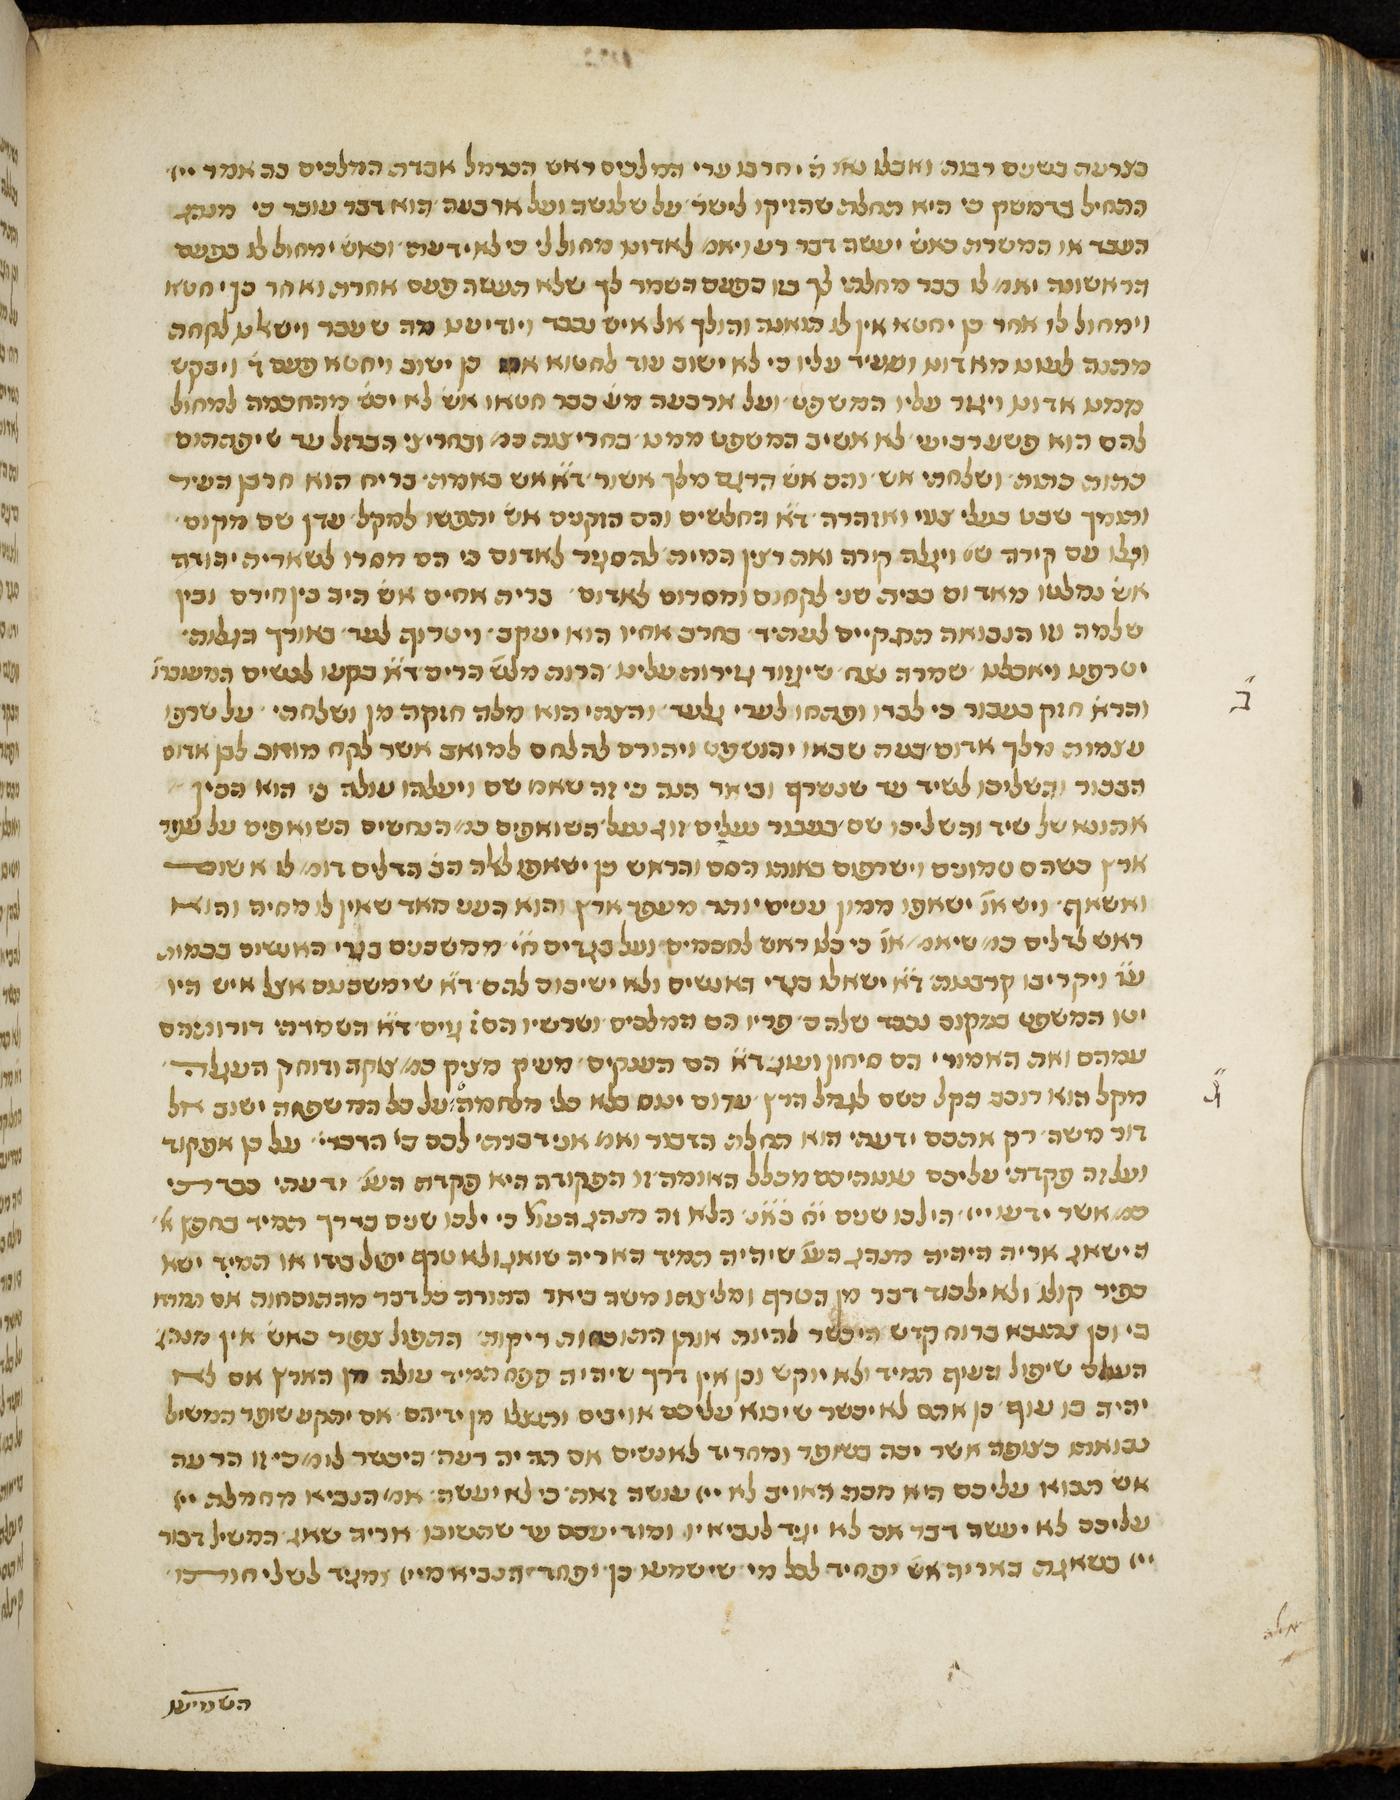 בצרעה בשעם רבנה ואבלו נאו ה יחרבו ערי המלכים ראש הכרמל אבדה המלכים כה אמר ייי
התחיל בדמשק כי היא תחלת שהזיקו לישר על שלשה ועל ארבעה הוא דבר עובר כי מנהג
העבד או המשרת כאש יעשה דבר רע ויאמ לאדונו מחול לי כי לא ידעתי וכאש ימחול לו בפעם
הראשונה יאמ לו כבר מחלתי לך בזו בפעם השמר לך שלא תעשה פעם אחרת ואחר כן יחטא
וימחול לו אחר כן יחטא אין לו תואנה והולך אל איש נכבד ויודיענו מה שעבר וישאלנו לקחת
מתנה לשום מאדונו ומעיד עליו כי לא ישוב עוד לחטוא אם כן ישוב ויחטא פעם ד ויבקש
ממנו אדונו ויגזר עליו המשפט ועל ארבעה מש כבר חטאו אש לא יכש מהחכמה למחול
להם הוא פשע רביעי לא אשיב המשפט ממנו בחריצות כמ ובחריצי הברזל עד שיפההום
כתות כתות ושלחתי אש והם אש הרגם מלך אשור דא אש באמת בריח הוא חרבן העיר
ותומך שבט בעלי צעי ואזהרה דא החלשים והם הזקנים אש יתפשו למקל עדן שם מקום
וגלו עם קירה ש ויגלה קירה ואת רצין המית להסגיר לאדום כי הם מסרו לשארית יהודה
אש נמלטו מאדום בבית שני לקחום ומסרום לאדום ברית אחים אש היה בין חירם ובין
שלמה זו הנבואה תתקיים לעתיד בחרב אחיו הוא יעקב ויטרוף לעד באורך הגלות
יטרפנו ויאכלנו שמרה נצח שיגזור גזירות עלינו הרות מלש הרים דא בקעו לנשים המשמ
והרא חזק בעבור כי לבדו ופתחו לערי גלעד והצתי הוא מלה חזקה מן ושלחתי על שרפו
עצמות מלך אדום בעת שבאו יהושפט ויהורם להלחם למואב אשר לקח מואב לבן אדום
הבכור והשליכו לשיד עד שנשרף וביאר הנה כי זה שאמ שם ויעלהו עולה כי הוא הכין
אתונא של שיד והשליכו שם בעבור נעלים זוג נעל השואפים כמ הנחשים השואפים על עפר
ארץ כשהם טמונים וישרפום באותו הסם והראש כן ישאפו לאלה הב הדלים דומ לו אשום
ואשאף ויש או ישאפו ממון עניים יותר מעפר ארץ והוא העני מאד שאין לו מחיה והוא
ראש לדלים כמ שיאמ או כי כלו ראש לחכמים ועל בגדים חי ממשכנים בגדי האנשים בבמות
עז ויקריבו קרבנות דא ישאלו בגדי האנשים ולא ישיבום להם דא שימשכנום אצל איש היו
יטו המשפט במקום נכבד שלהם פריו הם המלכים ושרשיו הם גוים דא השמדתי דורותיהם
עמהם ואת האמורי הם סיחון ועוג דא הם הענקים מעיק מציק כמ צוקה ודוחק העגלה
מקל הוא רוכב הקל כשם לגמל הרץ ערום ינוס בלא כלי מלחמה על כל המשפחה ישוב אל
דור משה רק אתכם ידעתי הוא תחלת הדבור ואמ אני דברתי לכם כי הדברי על כן אפקוד
ועל זה פקדתי עליכם עונותיכם מכלל האומה זו הפקודה היא פקדת העו ידעתי כבר חכי
כמ אשר ידעו ייי הילכו שנים יח כאנ הלא זה מנהג העול כי ילכו שנים בדרך תמיד בחפץ א
הישאג אריה היהיה מנהג העו שיהיה תמיד האריה שואג ולא טרף יפול בידו או תמיד ישא
כפיר קולו ולא ילכוד דבר מן הטרף ומליצתו משה ביאר התורה כל דבר מהתוכחות אם תהיה
כי וכן נתנבא ברוח קדש היכשר להיות אותן התוכחות ריקות התפול צפור כאש אין מנהג
העולם שיפול העוף תמיד ולא יוקש וכן אין דרך שיהיה הפח תמיד עולה מן הארץ אם לא
יהיה בו עוף כן אתם לא יכשר שיבוא עליכם אויבים ותנצלו מן ידיהם אם יתקע שופר המשיל
נבואתו כצופה אשר יכה בשופר ומחריד לאנשים אם תהיה רעה היכשר לומ כי זו הרעה
אש תבוא עליכם היא מכת האויב לא ייי עושה זאת כי לא יעשה אמ הנביא מחמלת ייי
עליכם לא יעשה דבר אם לא יגיד לנביאיו ומודיעכם עד שתשובו אריה שאג המשיל דבור
ייי כשאגת האריה אש יפחיד לכל מי שישמעו כן יפחד הנביא מייי ומגיד לשליחותו
ב
ג
השמיעו